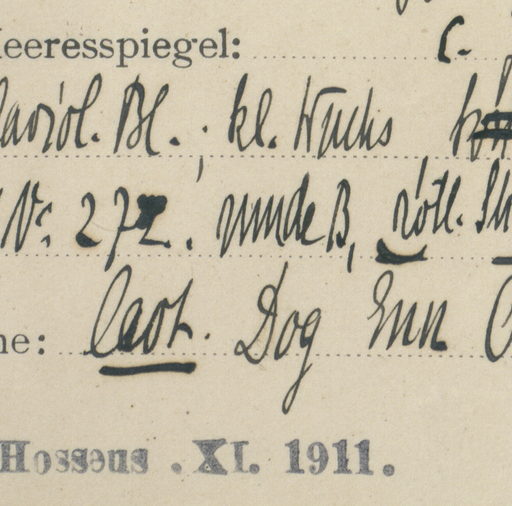 eeresspiegel: c.
. Bl. ; kl. Wuchs
No 272. runde B, rötl.
ne: Laot. Dog Enn
Hosseus . XI. 1911.